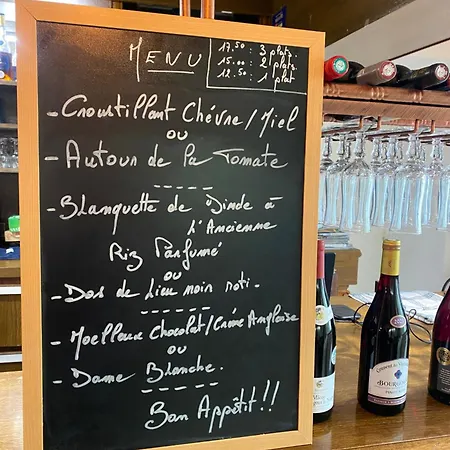 MENU
17.50 : 3 plats.
15.00 : 2 plats
12.50 : 1 plat
- Croustillant Chévre / Miel
ou
- Autour de la Tomate
- Blanquette de Dinde à
l'Ancienne
Riz Parfumé
ou
- Dos de Lieu noir roti -
- Moelleux Chocolat / Crème Anglaise
ou
- Dame Blanche.
Bon Appétit !!